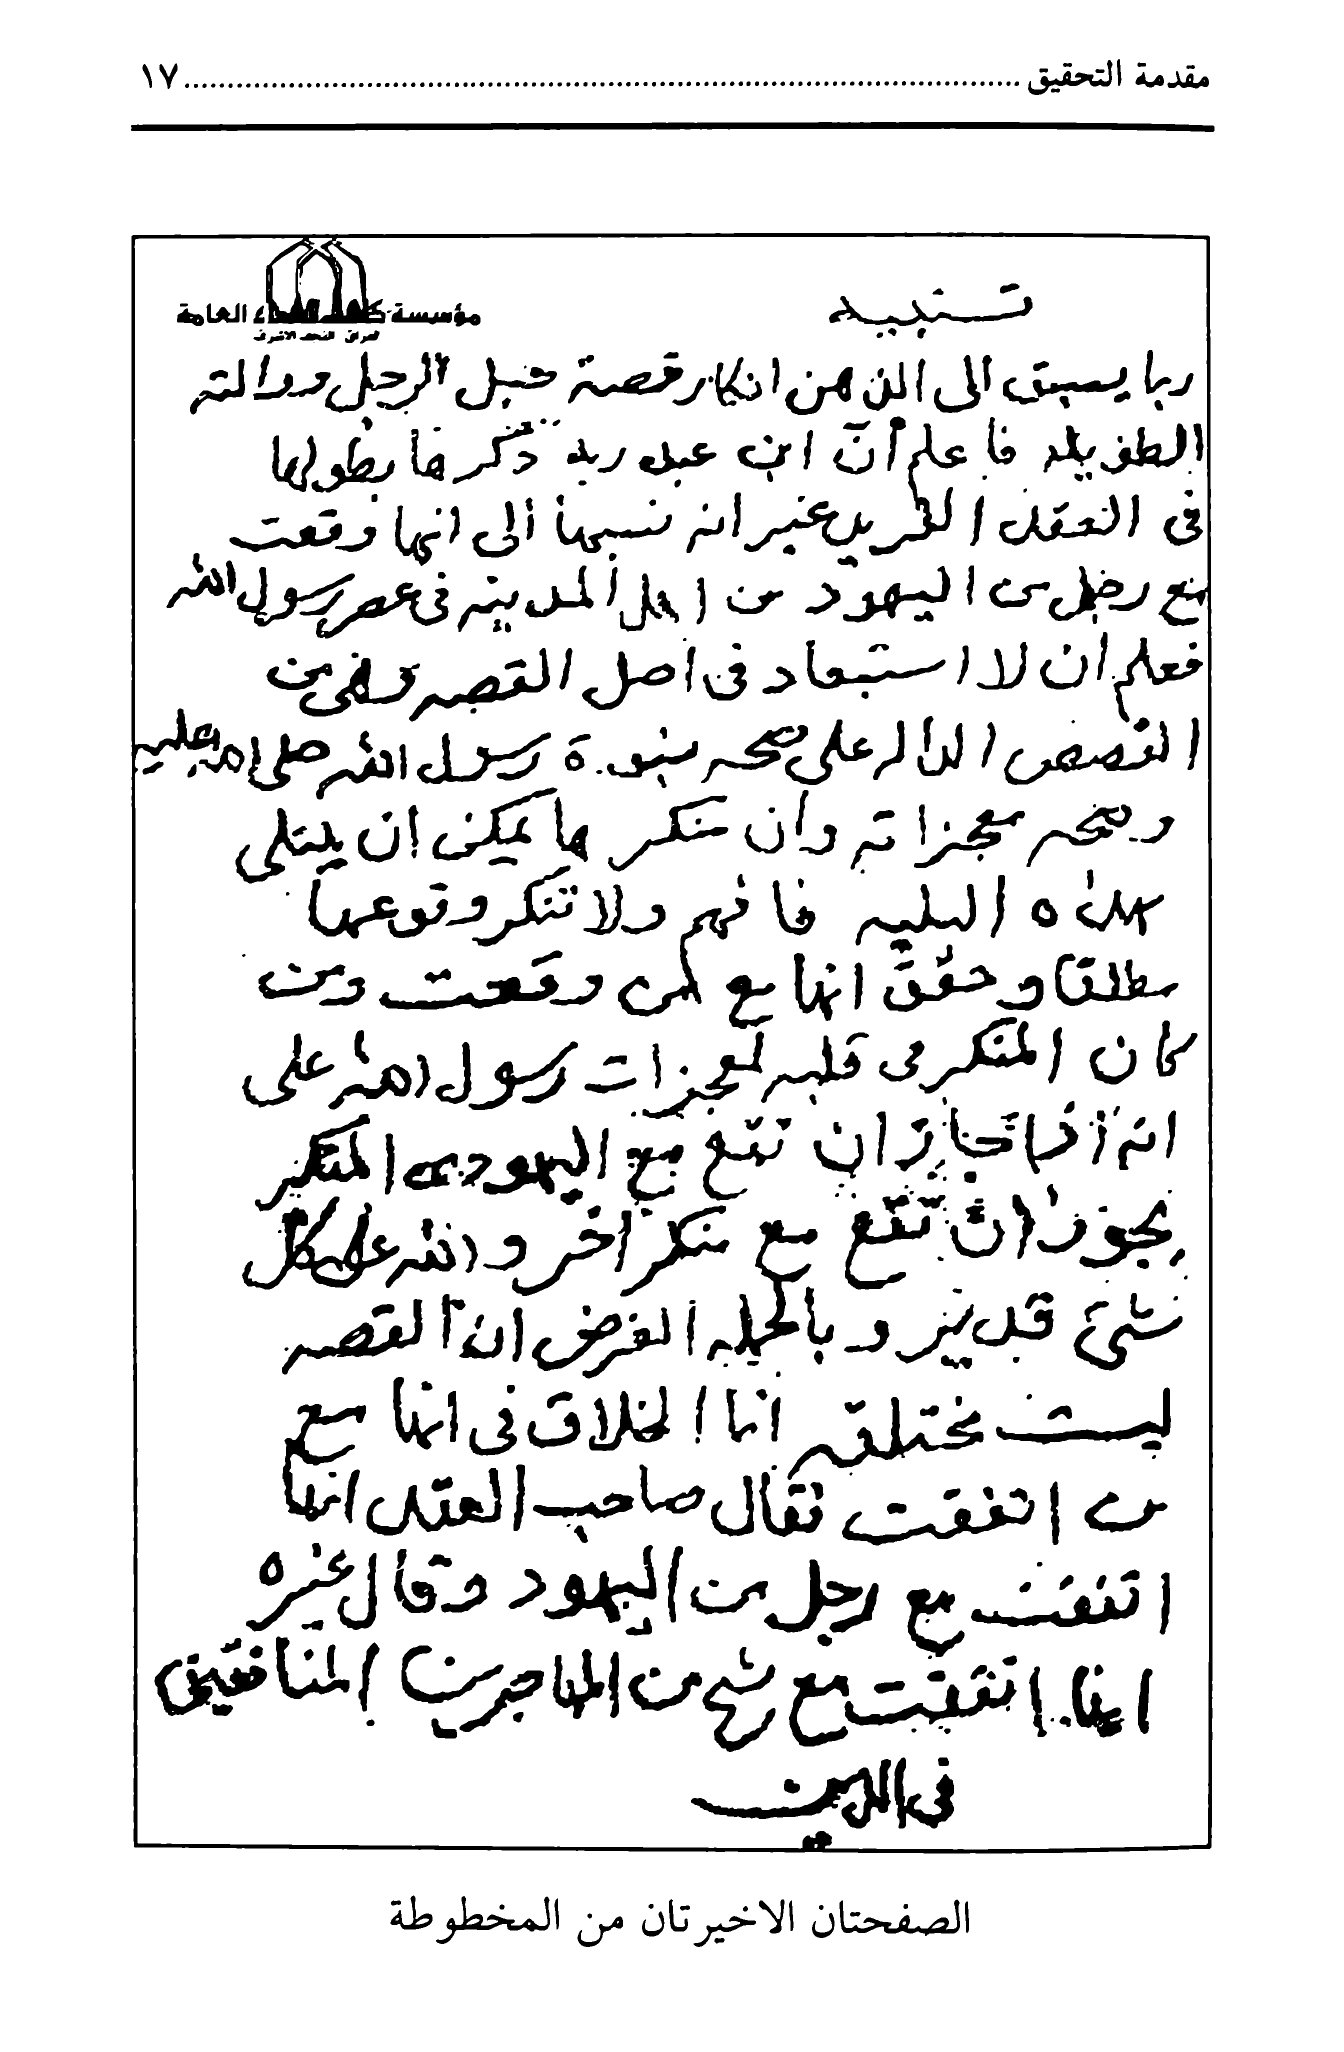 مقدمة التحقيق ........................................ ١٧
مؤسسة كاشف الغطاء العامة
العراق النجف الاشرف
تنبيه
ربما يسبق الى الذهن انكار قصة خبل الرجل ودالته
الطفيليه فاعلم أنّ ابن عبد ربه ذكرها بطولها
في العقد الفريد غير انه نسبها الى انها وقعت
مع رجل من اليهود من اهل المدينه في عصر رسول الله
فعلم ان لا استبعاد في اصل القصه وهي من
القصص الداله على صحه نبوة رسول الله صلى الله عليه
وصحه معجزاته وان منكرها يمكن ان يبتلى
بهذه البليه فافهم ولا تنكر وقوعها
مطلقا وحقق انها مع من وقعت ومن
كان المنكر في قلبه لمعجزات رسول الله على
انه اذا جاز ان تقع مع اليهودي المنكر
يجوز ان تقع مع منكر آخر والله على كل
شئ قدير وبالجمله الغرض ان القصه
ليست مختلقه انما الخلاف في انها مع
من اتفقت فقال صاحب العقد انها
اتفقت مع رجل من اليهود وقال غيره
انها اتفقت مع من المهاجرين المنافقين
في الدين
الصفحتان الاخيرتان من المخطوطة